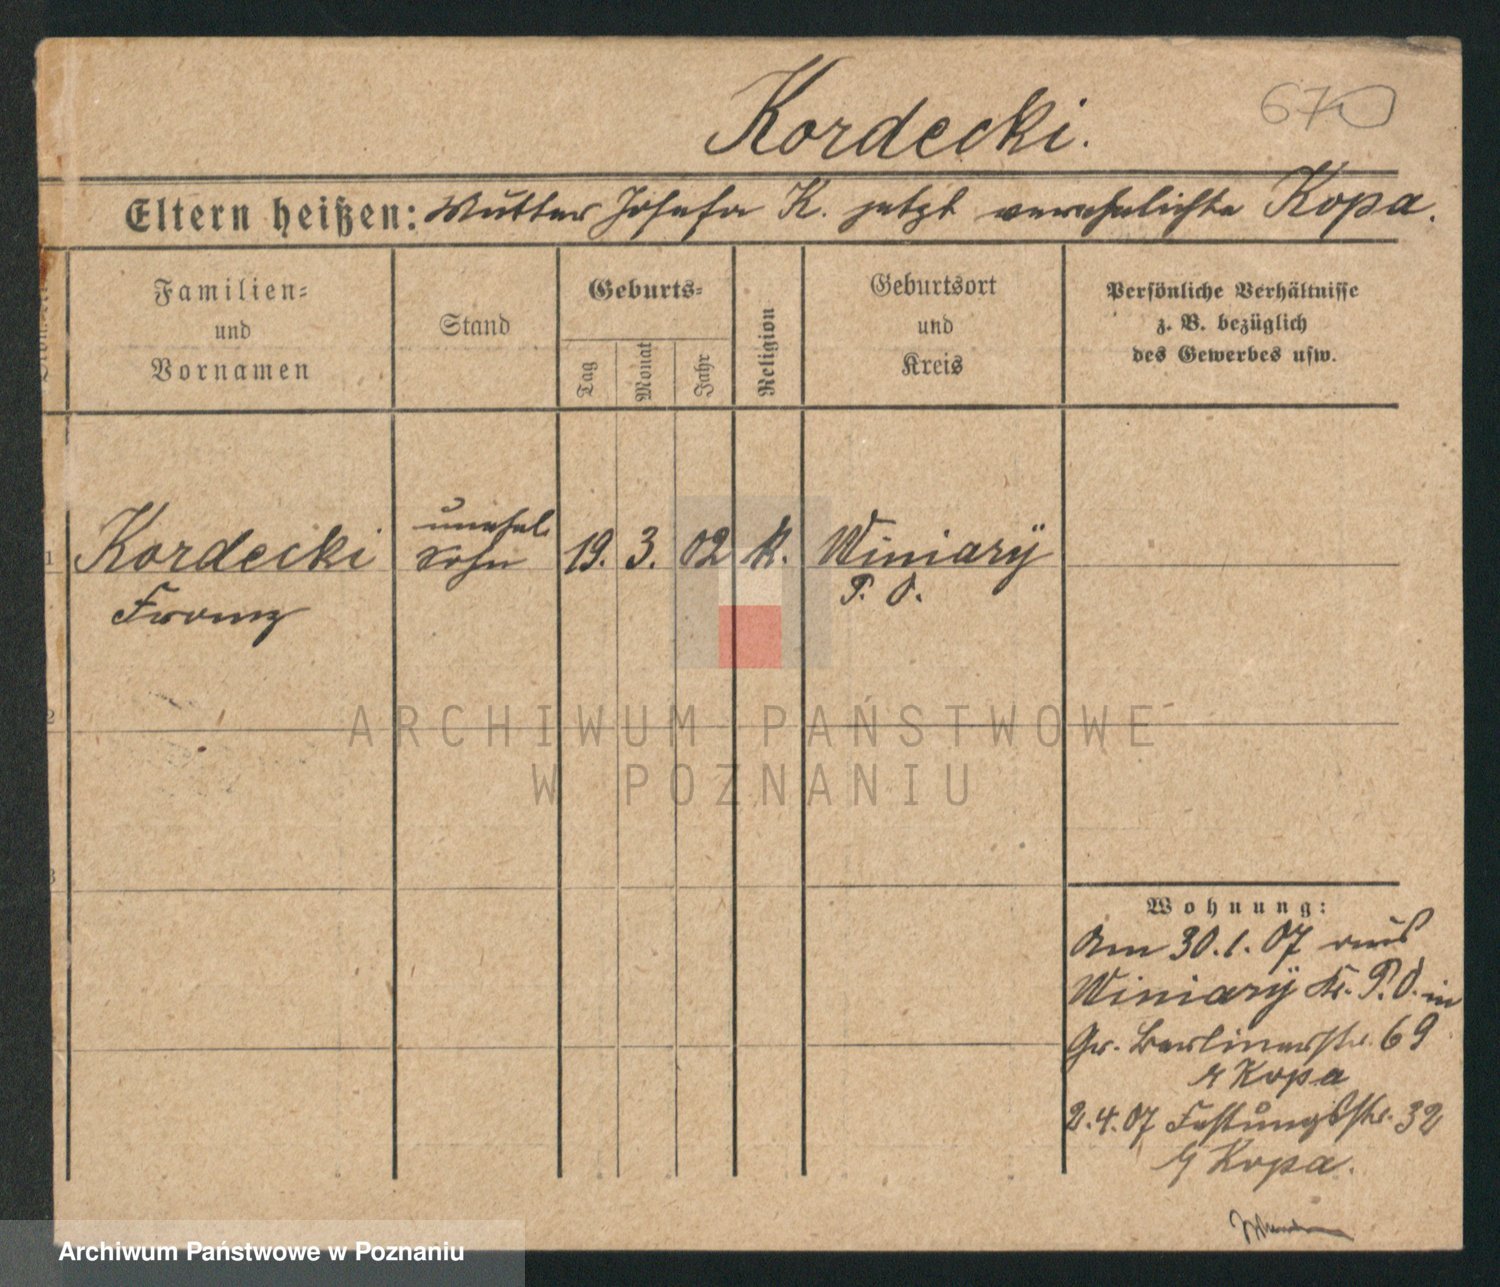 670
Kordecki.
Eltern heißen: Mutter Josefa K. jetzt verehelichte Kopa.
Familien-
und
Vornamen
Stand
Geburts-
Tag
Monat
Jahr
Religion
Geburtsort
und
Kreis
Persönliche Verhältnisse
z. B. bezüglich
des Gewerbes usw.
1
Kordecki
Franz
unehel.
Sohn
19.
3.
02
K.
Winiarÿ
P. O.
2
3
Wohnung:
Am 30.1.07 aus
Winiarÿ Kr. P. O. in
Gr. Berlinerstr. 69
Kopa
2.4.07 Festungsstr. 32
Kopa.
ARCHIWUM PAŃSTWOWE
W POZNANIU
Archiwum Państwowe w Poznaniu